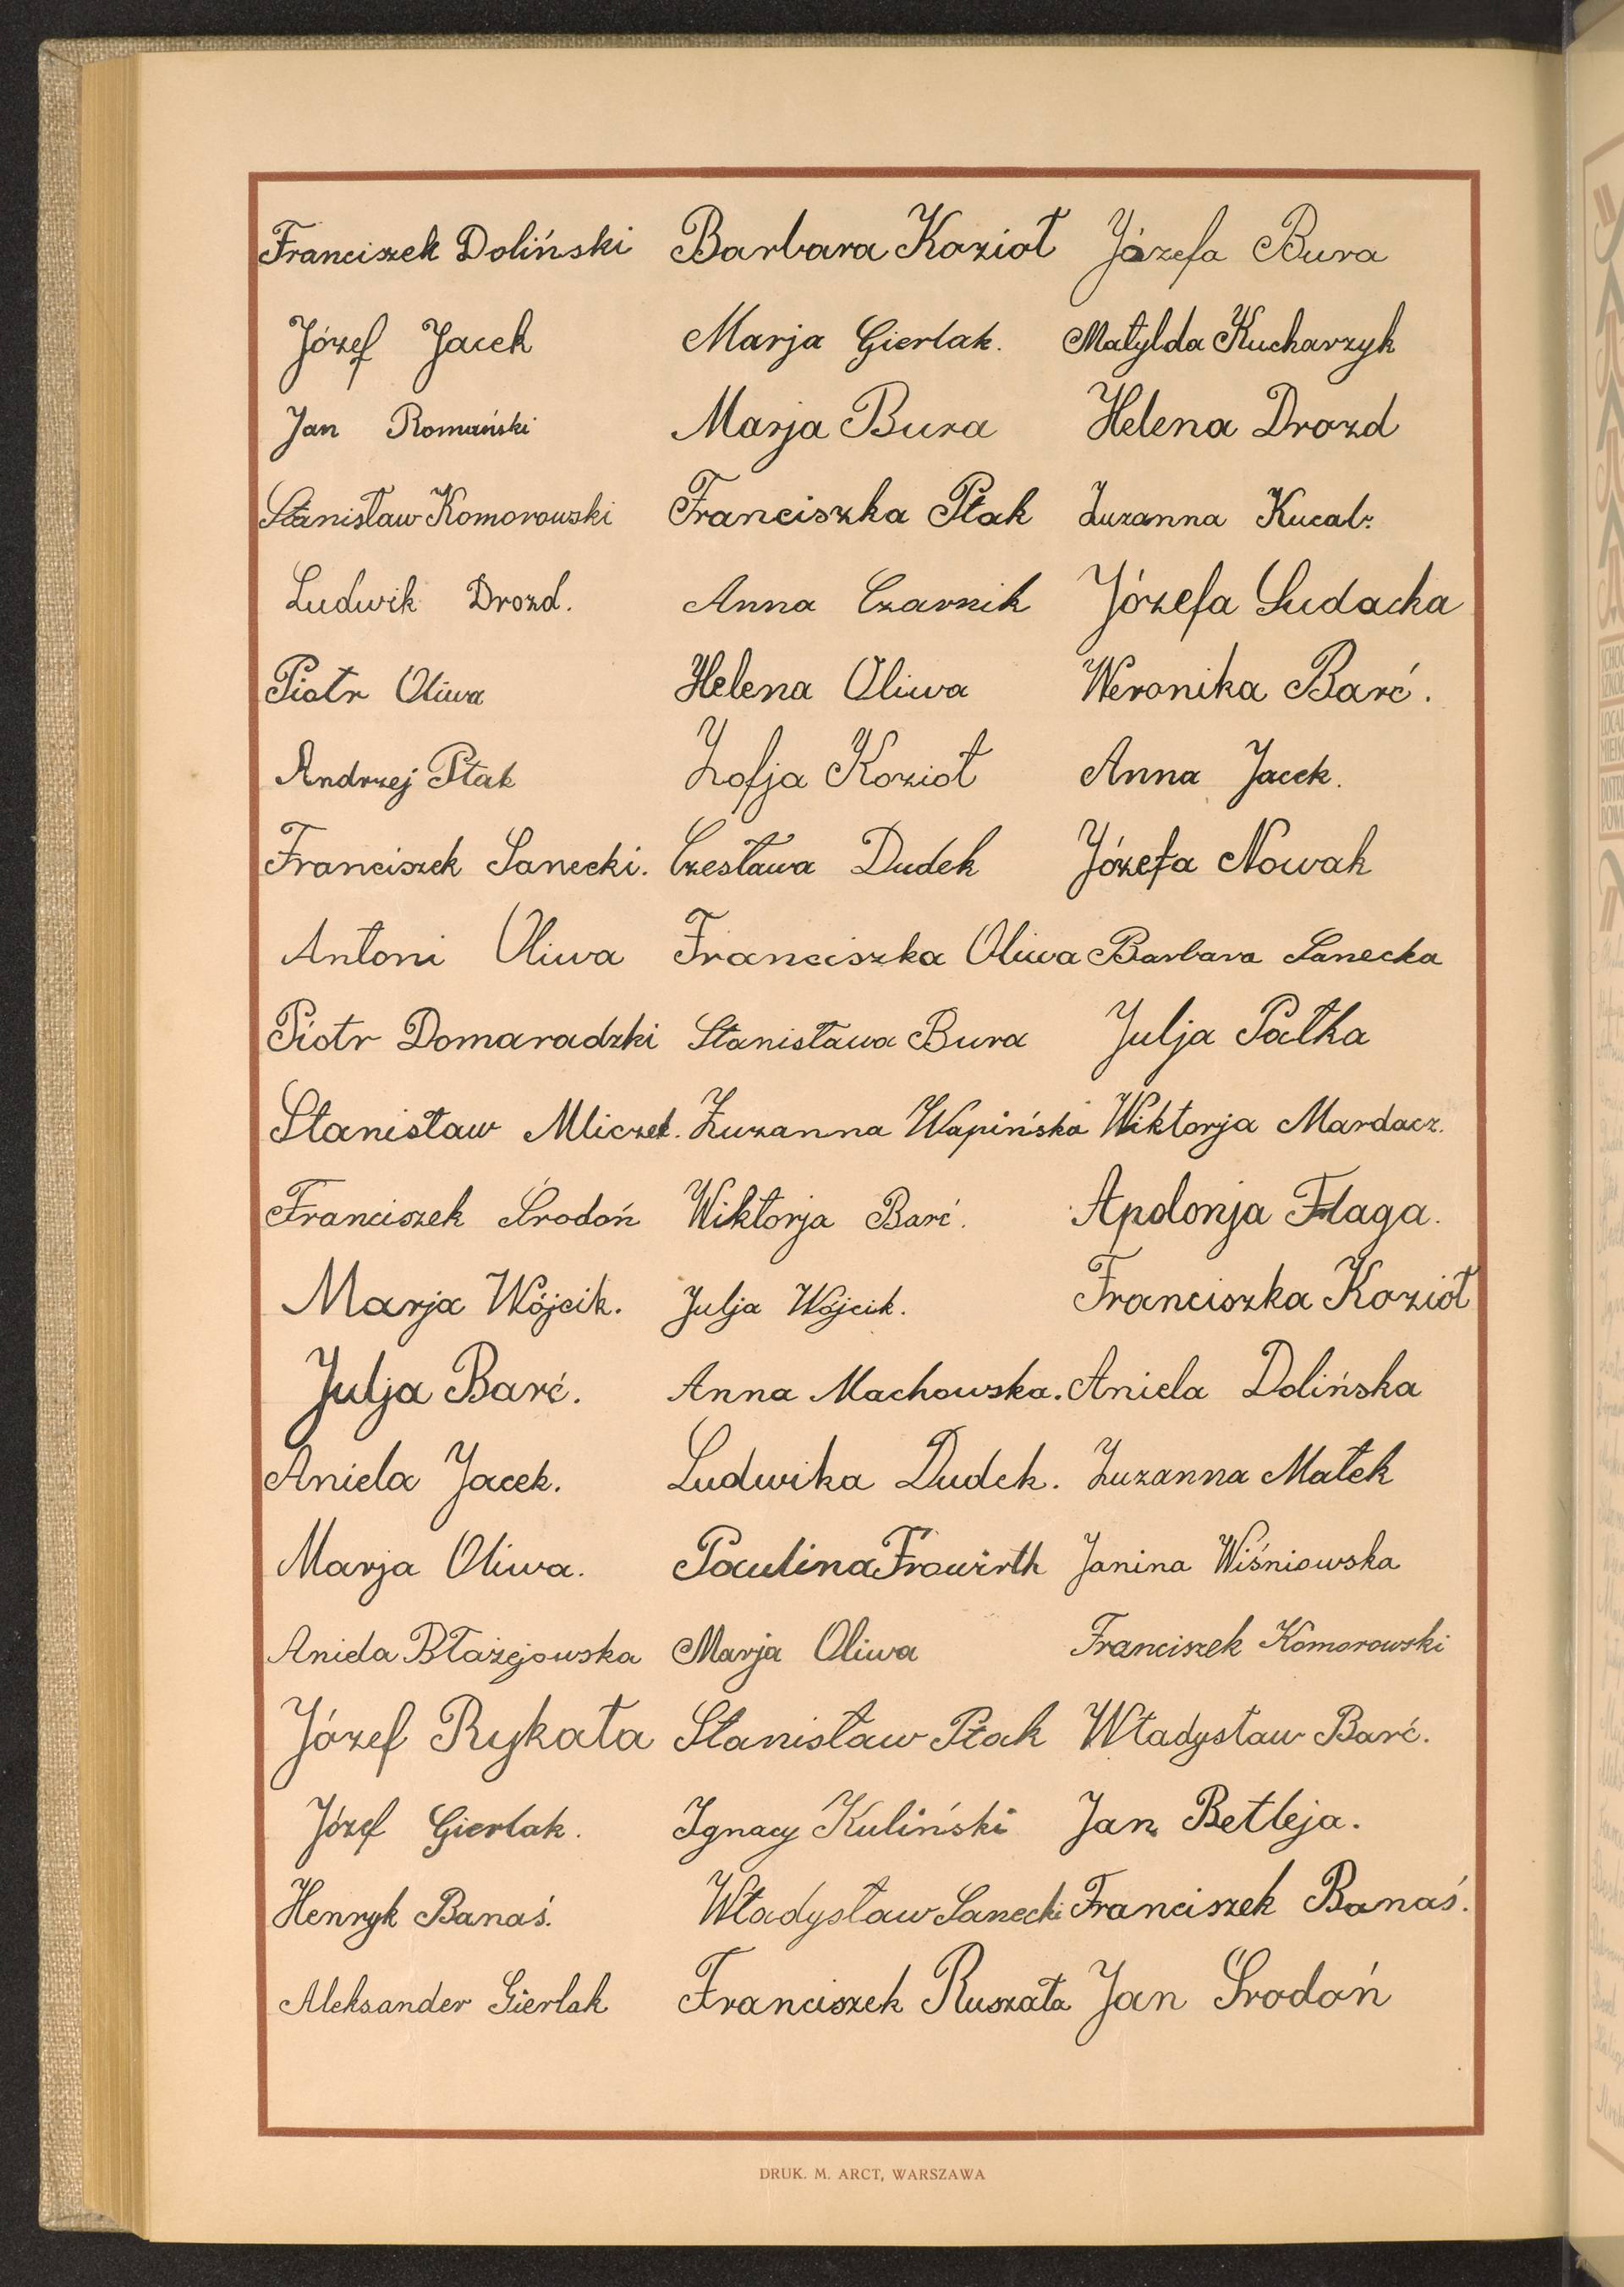 Franciszek Doliński Barbara Kozioł Józefa Bura
Józef Jacek Marja Gierlak. Matylda Kucharzyk
Jan Romański Marja Bura Helena Drozd
Stanisław Komorowski Franciszka Ptak Zuzanna
Ludwik Drozd. Anna Czarnik Józefa Sudacka
Piotr Oliwa Helena Oliwa Weronika Barć.
Andrzej Ptak Zofja Kozioł Anna Jacek.
Franciszek Sanecki. Czesława Dudek Józefa Nowak
Antoni Oliwa Franciszka Oliwa Barbara Sanecka
Piotr Domaradzki Stanisława Bura Julja Pałka
Stanisław Mliczek. Zuzanna Wapińska Wiktorja Mardacz.
Franciszek Środoń Wiktorja Barć. Apolonja Flaga.
Marja Wójcik. Julja Wójcik. Franciszka Kozioł
Julja Barć. Anna Machowska. Aniela Dolińska
Aniela Jacek. Ludwika Dudek. Zuzanna Małek
Marja Oliwa. Paulina Frowirth Janina Wiśniowska
Aniela Błażejowska Marja Oliwa Franciszek Komorowski
Józef Rykała Stanisław Ptak Władysław Barć.
Józef Gierlak. Ignacy Kuliński Jan Betleja.
Henryk Banaś. Władysław Sanecki Franciszek Banaś.
Aleksander Gierlak Franciszek Ruszała Jan Środoń
DRUK. M. ARCT, WARSZAWA